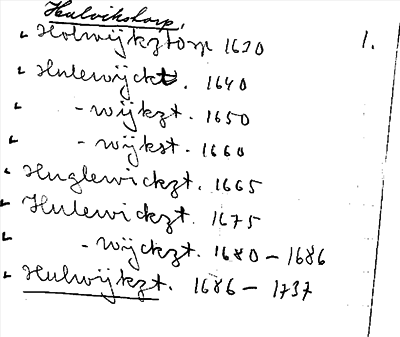 Hulvikstorp.
" Holwijkztorp 1630 1.
" Hulewijckt. 1640
" - wijkzt. 1650
" - wijkst. 1660
" Huglewickzt. 1665
" Hulewickzt. 1675
" - wijckzt. 1680 - 1686
" Hulwijkzt. 1686 - 1737